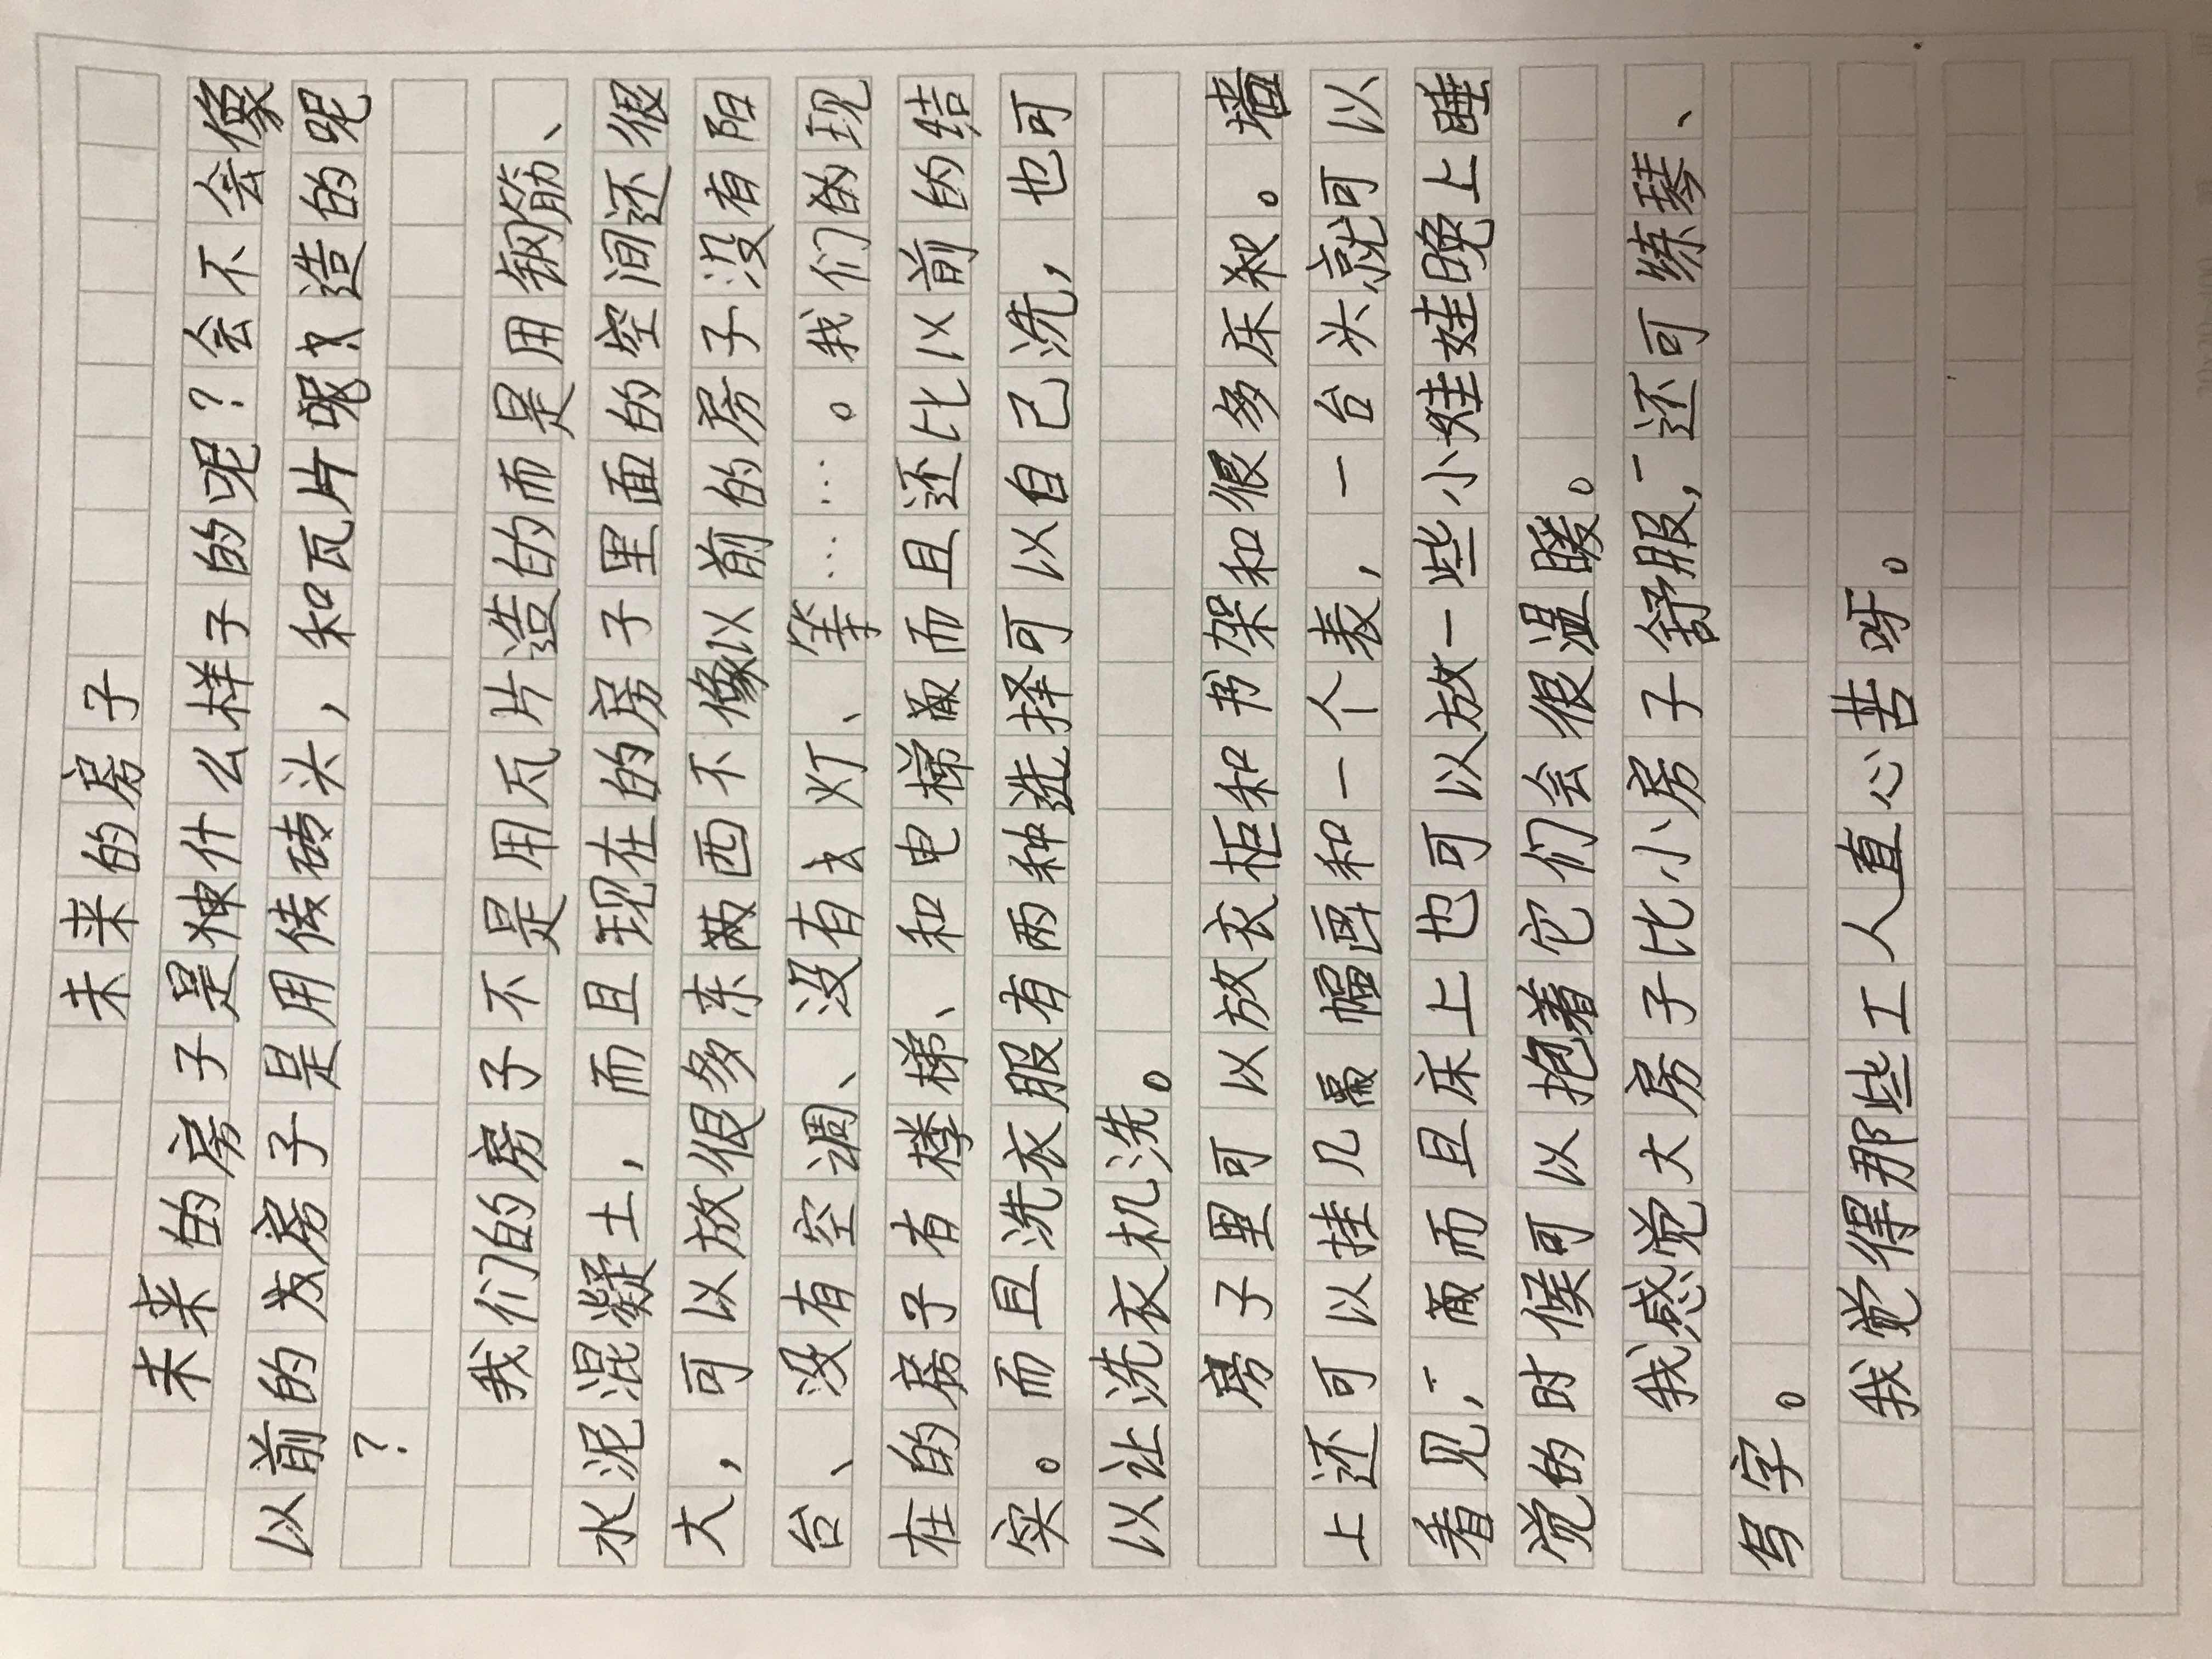 未来的房子
未来的房子是使什么样子的呢？会不会像
以前的发房子是用传砖头，和瓦片呢造的呢
？
我们的房子不是用瓦片造的而是用钢筋、
水泥混凝土，而且现在的房子里面的空间还很
大，可以放很多东西不像以前的房子没有阳
台、没有空调、没有灯、等……。我们的现
在的房子有楼梯、和电梯而且还比以前的结
实。而且洗衣服有两种选择可以自己洗，也可
以让洗衣机洗。
房子里可以放衣柜和书架和很多床。墙
上还可以挂几幅画和一个表，一台头就可以
看见，而且床上也可以放一些小娃娃晚上睡
觉的时候可以抱着它们会很温暖。
我感觉大房子比小房子舒服，还可练琴、
写字。
我觉得那些工人直心苦呀。